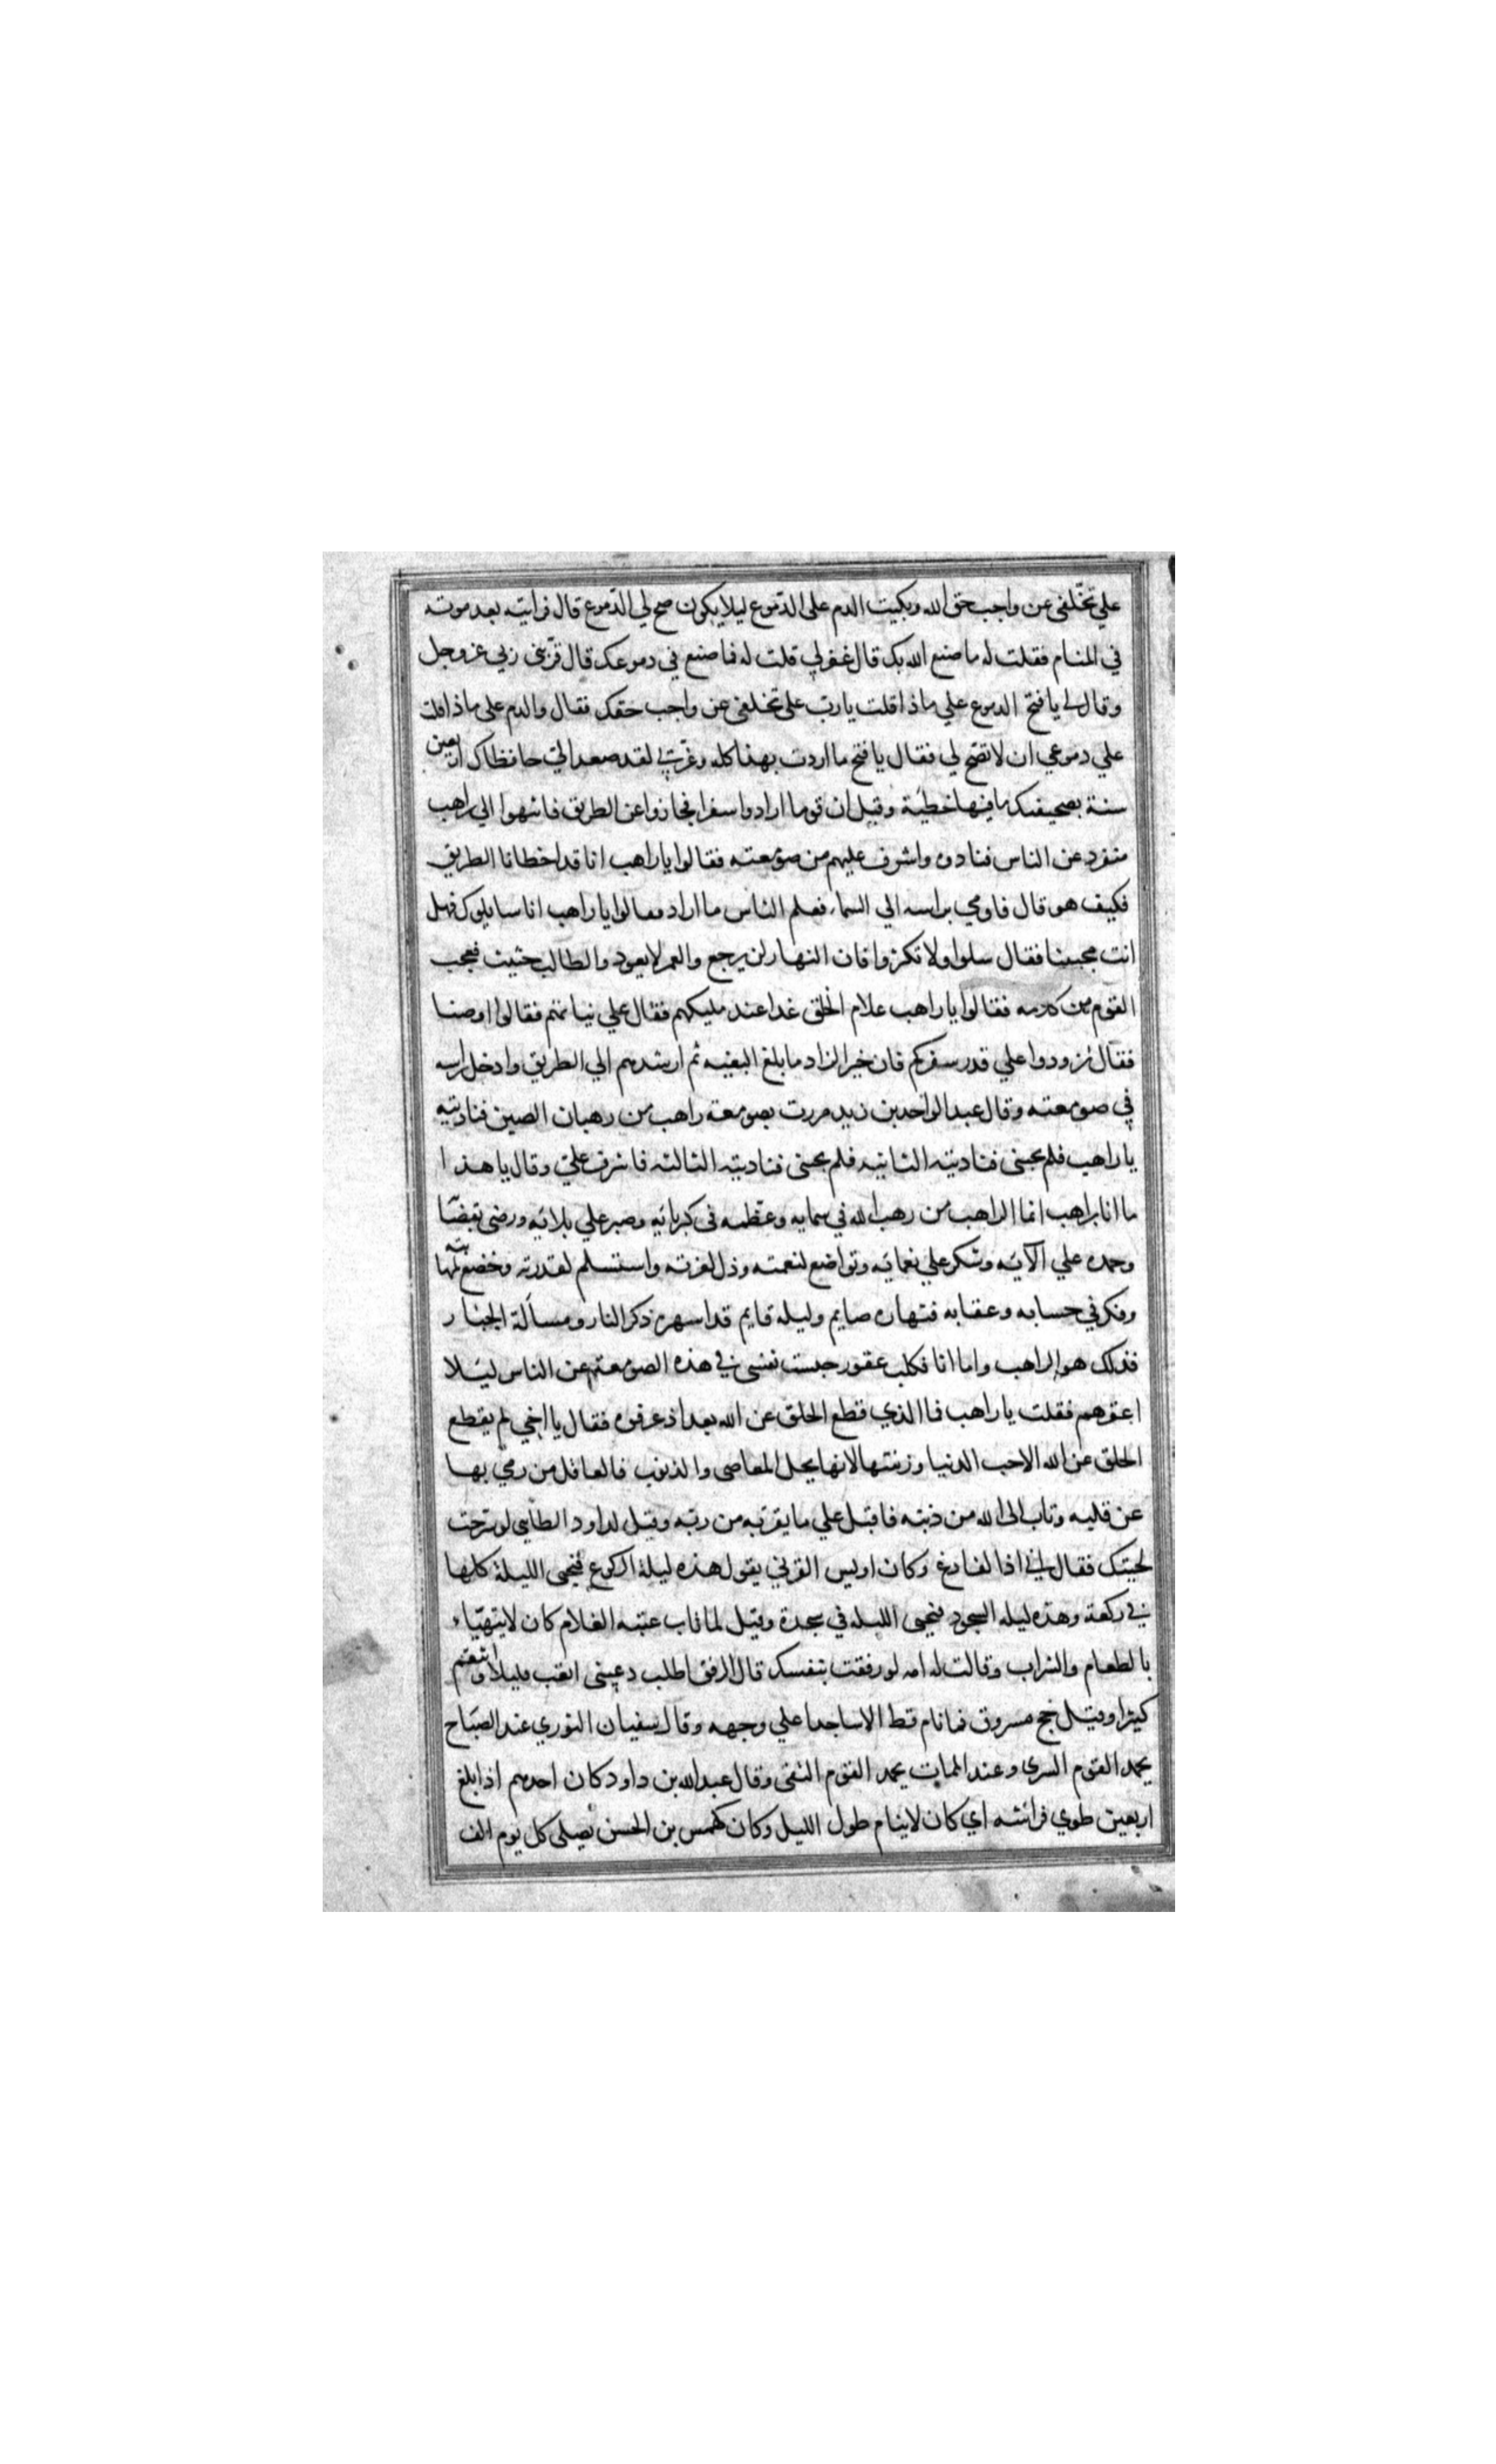 علي تخلفى عن واجب حق الله وبكيت الدم على الدموع ليلا يكون صح لي الدموع قال فرايته بعد موته
في المنام فقلت له ما صنع الله بك قال غفر لي قلت له فما صنع في دموعك قال قربنى ربي عز وجل
وقال لي يا فتح الدموع علي ماذا قلت يا رب على تخلفى عن واجب حقك فقال والدم على ماذا قلت
علي دموعي ان لا تصح لي فقال يا فتح ما اردت بهذا كله وعزتي لقد صعد الي حافظاك اربعين
سنة بصحيفتك ما فيها خطيئة وقيل ان قوما ارادوا سفرا فجازوا عن الطريق فانتهوا الي راهب
منفرد عن الناس فنادوه واشرف عليهم من صومعته فقالوا يا راهب انا قد اخطانا الطريق
فكيف هو قال فاومي براسه الي السماء فعلم الناس ما اراد فقالوا يا راهب انا سايلوك فهل
انت مجيبنا فقال سلوا ولا تكثروا فان النهار لن يرجع والعمر لا يعود والطالب حثيث فعجب
القوم من كلامه فقالوا يا راهب علام الخلق غدا عند مليكهم فقال علي نياتهم فقالوا اوصنا
فقال تزودوا علي قدر سفركم فان خير الزاد ما بلغ البغيه ثم ارشدهم الي الطريق وادخل راسه
في صومعته وقال عبد الواحد بن زيد مررت بصومعة راهب من رهبان الصين فناديته
يا راهب فلم يجبنى فناديته الثانيه فلم يجبنى فناديته الثالثه فاشرف علي وقال يا هذا
ما انا براهب انما الراهب من رهب الله في سمايه وعظمه فى كبريائه وصبر علي بلائه ورضى بقضا
وحمده علي الآئه وشكر علي نعمائه وتواضع لنعمته وذل لعزته واستسلم لقدرته وخضع لمهابته
وفكر في حسابه وعقابه فنهاره صايم وليله قايم قد اسهره ذكر النار ومسألة الجبار
فذلك هو الراهب واما انا فكلب عقور حبست نفسى في هذه الصومعة عن الناس ليئلا
اعقرهم فقلت يا راهب فما الذي قطع الخلق عن الله بعد اذ عرفوه فقال يا اخي لم يقطع
الخلق عن الله الا حب الدنيا وزينتها لانها محل المعاصى والذنوب فالعاقل من رمي بها
عن قلبه وتاب الى الله من ذنبه فاقبل علي ما يقربه من ربه وقيل لداود الطايي لو سرحت
لحيتك فقال اني اذا لفارغ وكان اويس القرني يقول هذه ليلة الركوع فيحيى الليلة كلها
في ركعة وهذه ليله السجود فيحيى الليله في سجدة وقيل لما تاب عتبه الغلام كان لا يتهياء
بالطعام والشراب وقالت له امه لو رفقت بنفسك قال الرفق اطلب دعينى اتعب قليلا واتنعم
كثيرا وقيل حج مسروق فما نام قط الا ساجدا علي وجهه وقال سفيان الثوري عند الصباح
يحمد القوم السرى وعند الممات يحمد القوم التقى وقال عبد الله بن داود كان احدهم اذا بلغ
اربعين طوي فراشه اي كان لا ينام طول الليل وكان كهمس بن الحسن يصلى كل يوم الف